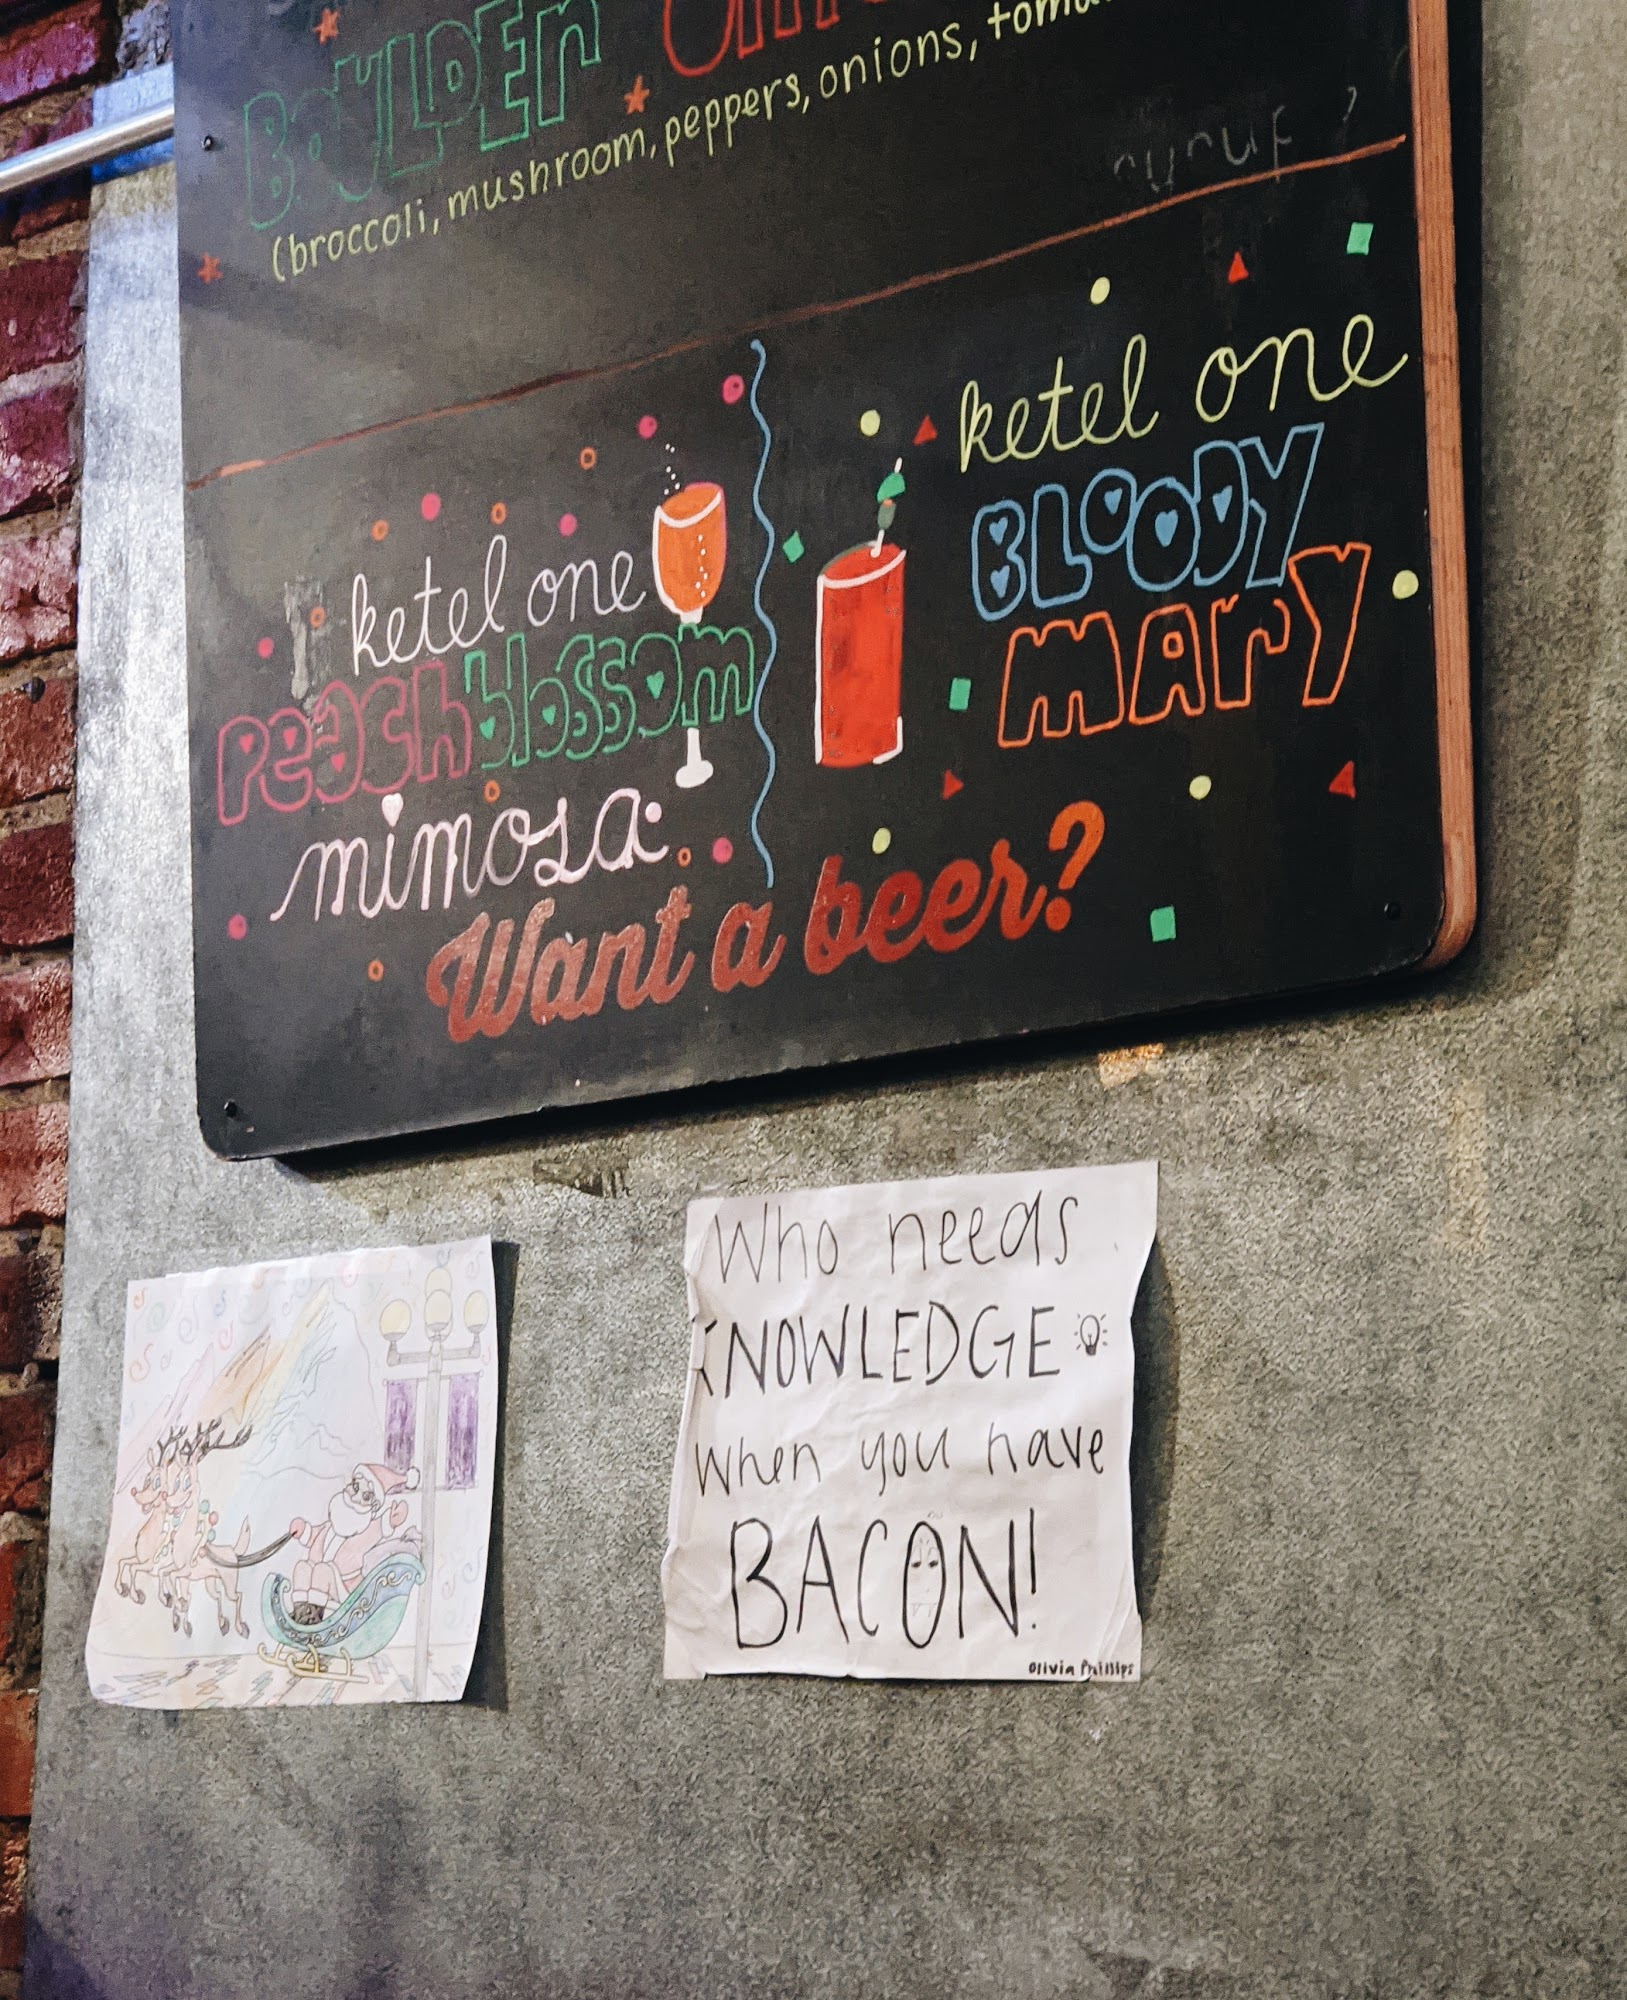 BOULDER
(broccoli, mushroom, peppers, onions,
ketel one
peachblossom
mimosa
ketel one
BLOODY
mary
Want a beer?
Who needs
KNOWLEDGE
when you have
BACON!
Olivia Phillips